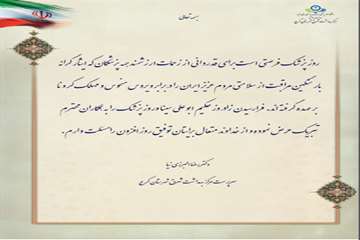 بسمه تعالی
روز پزشک فرصتی است برای قدردانی از زحمات ارزشمند همه پزشکان که ایثارگرانه
بار سنگین مراقبت از سلامتی مردم عزیز ایران را در برابر ویروس منحوس و مهلک کرونا
بر عهده گرفته اند. فرارسیدن زادروز حکیم ابوعلی سینا و روز پزشک را به همکاران محترم
تبریک عرض نموده و از خداوند متعال برایتان توفیق روز افزون را مسئلت دارم.
دکتر رضا
سرپرست مرکز بهداشت شرق شهرستان کرج